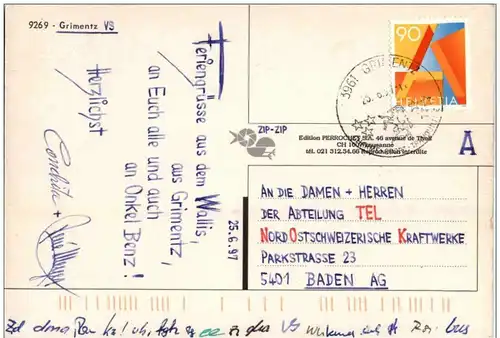 9269 - Grimentz VS
Feriengrüsse aus dem Wallis,
aus Grimentz,
an Euch alle und auch
an Onkel Benz!
Herzlichst
+
25.6.97
90
HELVETIA
3961 GRIMENTZ
ZIP-ZIP
Edition PERROCHET S.A. 46 avenue de
CH Lausanne
tél. 021 312.34.66 Reproduction interdite
A
AN DIE DAMEN + HERREN
DER ABTEILUNG TEL
NORDOSTSCHWEIZERISCHE KRAFTWERKE
PARKSTRASSE 23
5401 BADEN AG